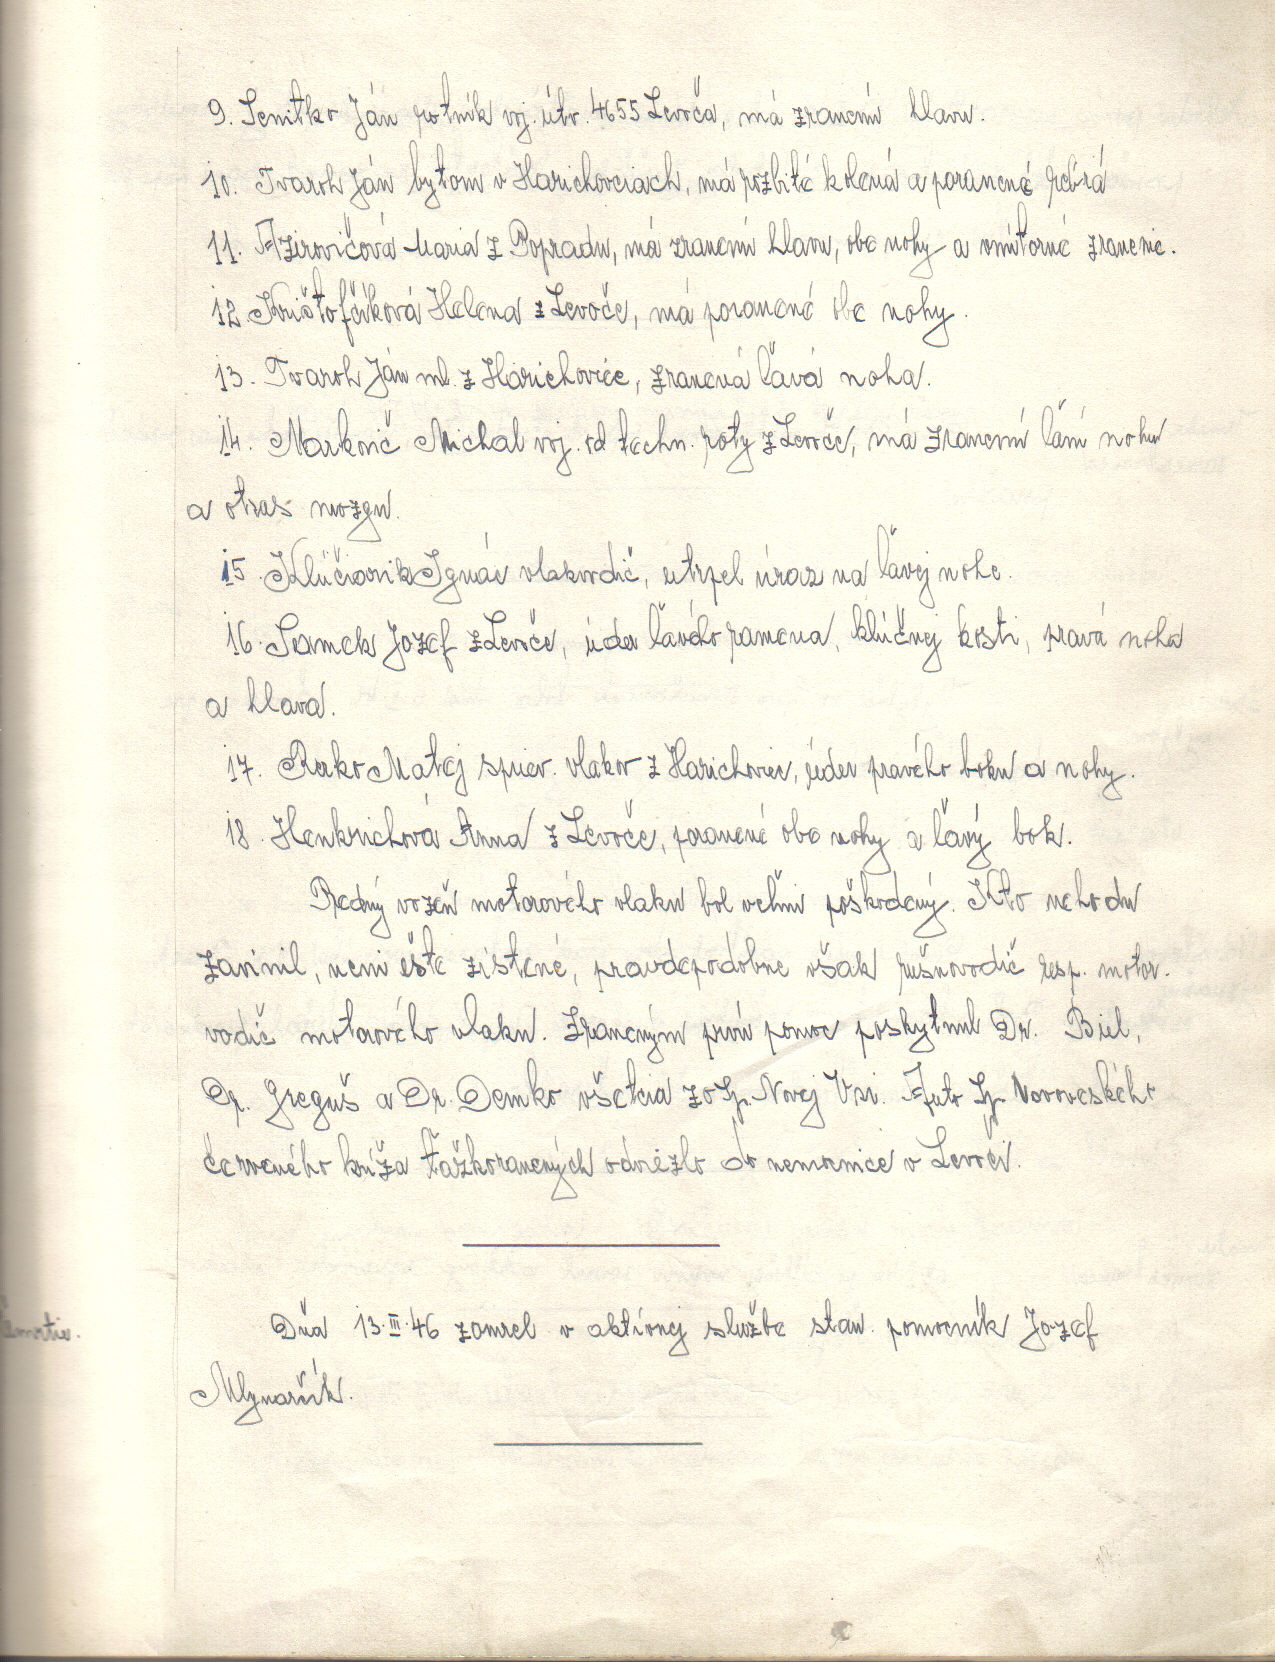 9. Senitko Ján rotník voj. útv. 4655 Levoča, má zranenú hlavu.
10. Tvaroh Ján bytom v Harichovciach, má rozbité kolená a poranené rebrá
11. Azirovičová Maria z Popradu, má zranenú hlavu, obe nohy a vnútorné zranenie.
12. Krištofčíková Helena z Levoče, má poranené obe nohy.
13. Tvaroh Ján ml. z Harichoviec, zranená ľavá noha.
14. Markovič Michal voj. od techn. roty z Levoče, má zranenú ľavú nohu
a otras mozgu.
15. Kľúčiarik Ignác vlakvodič, utrpel úraz na ľavej nohe.
16. Samek Jozef z Levoče, úder ľavého ramena, kľúčnej kosti, pravá noha
a hlava.
17. Rusko Matej spriev. vlakov z Harichoviec, úder pravého boku a nohy.
18. Henkrichová Anna z Levoče, poranené obe nohy a ľavý bok.
Predný vozeň motorového vlaku bol veľmi poškodený. Kto nehodu
zavinil, neni ešte zistené, pravdepodobne však rušňovodič resp. motor.
vodič motorového vlaku. Zraneným prvú pomoc poskytnul Dr. Biel,
Dr. Greguš a Dr. Demko všetcia zo Sp. Novej Vsi. Auto Sp. Novoveského
červeného kríža ťažkoranených odviezlo do nemocnice v Levoči.
Úmrtie.
Dňa 13.III.46 zomrel v aktívnej službe stan. pomocník Jozef
Mlynarčík.